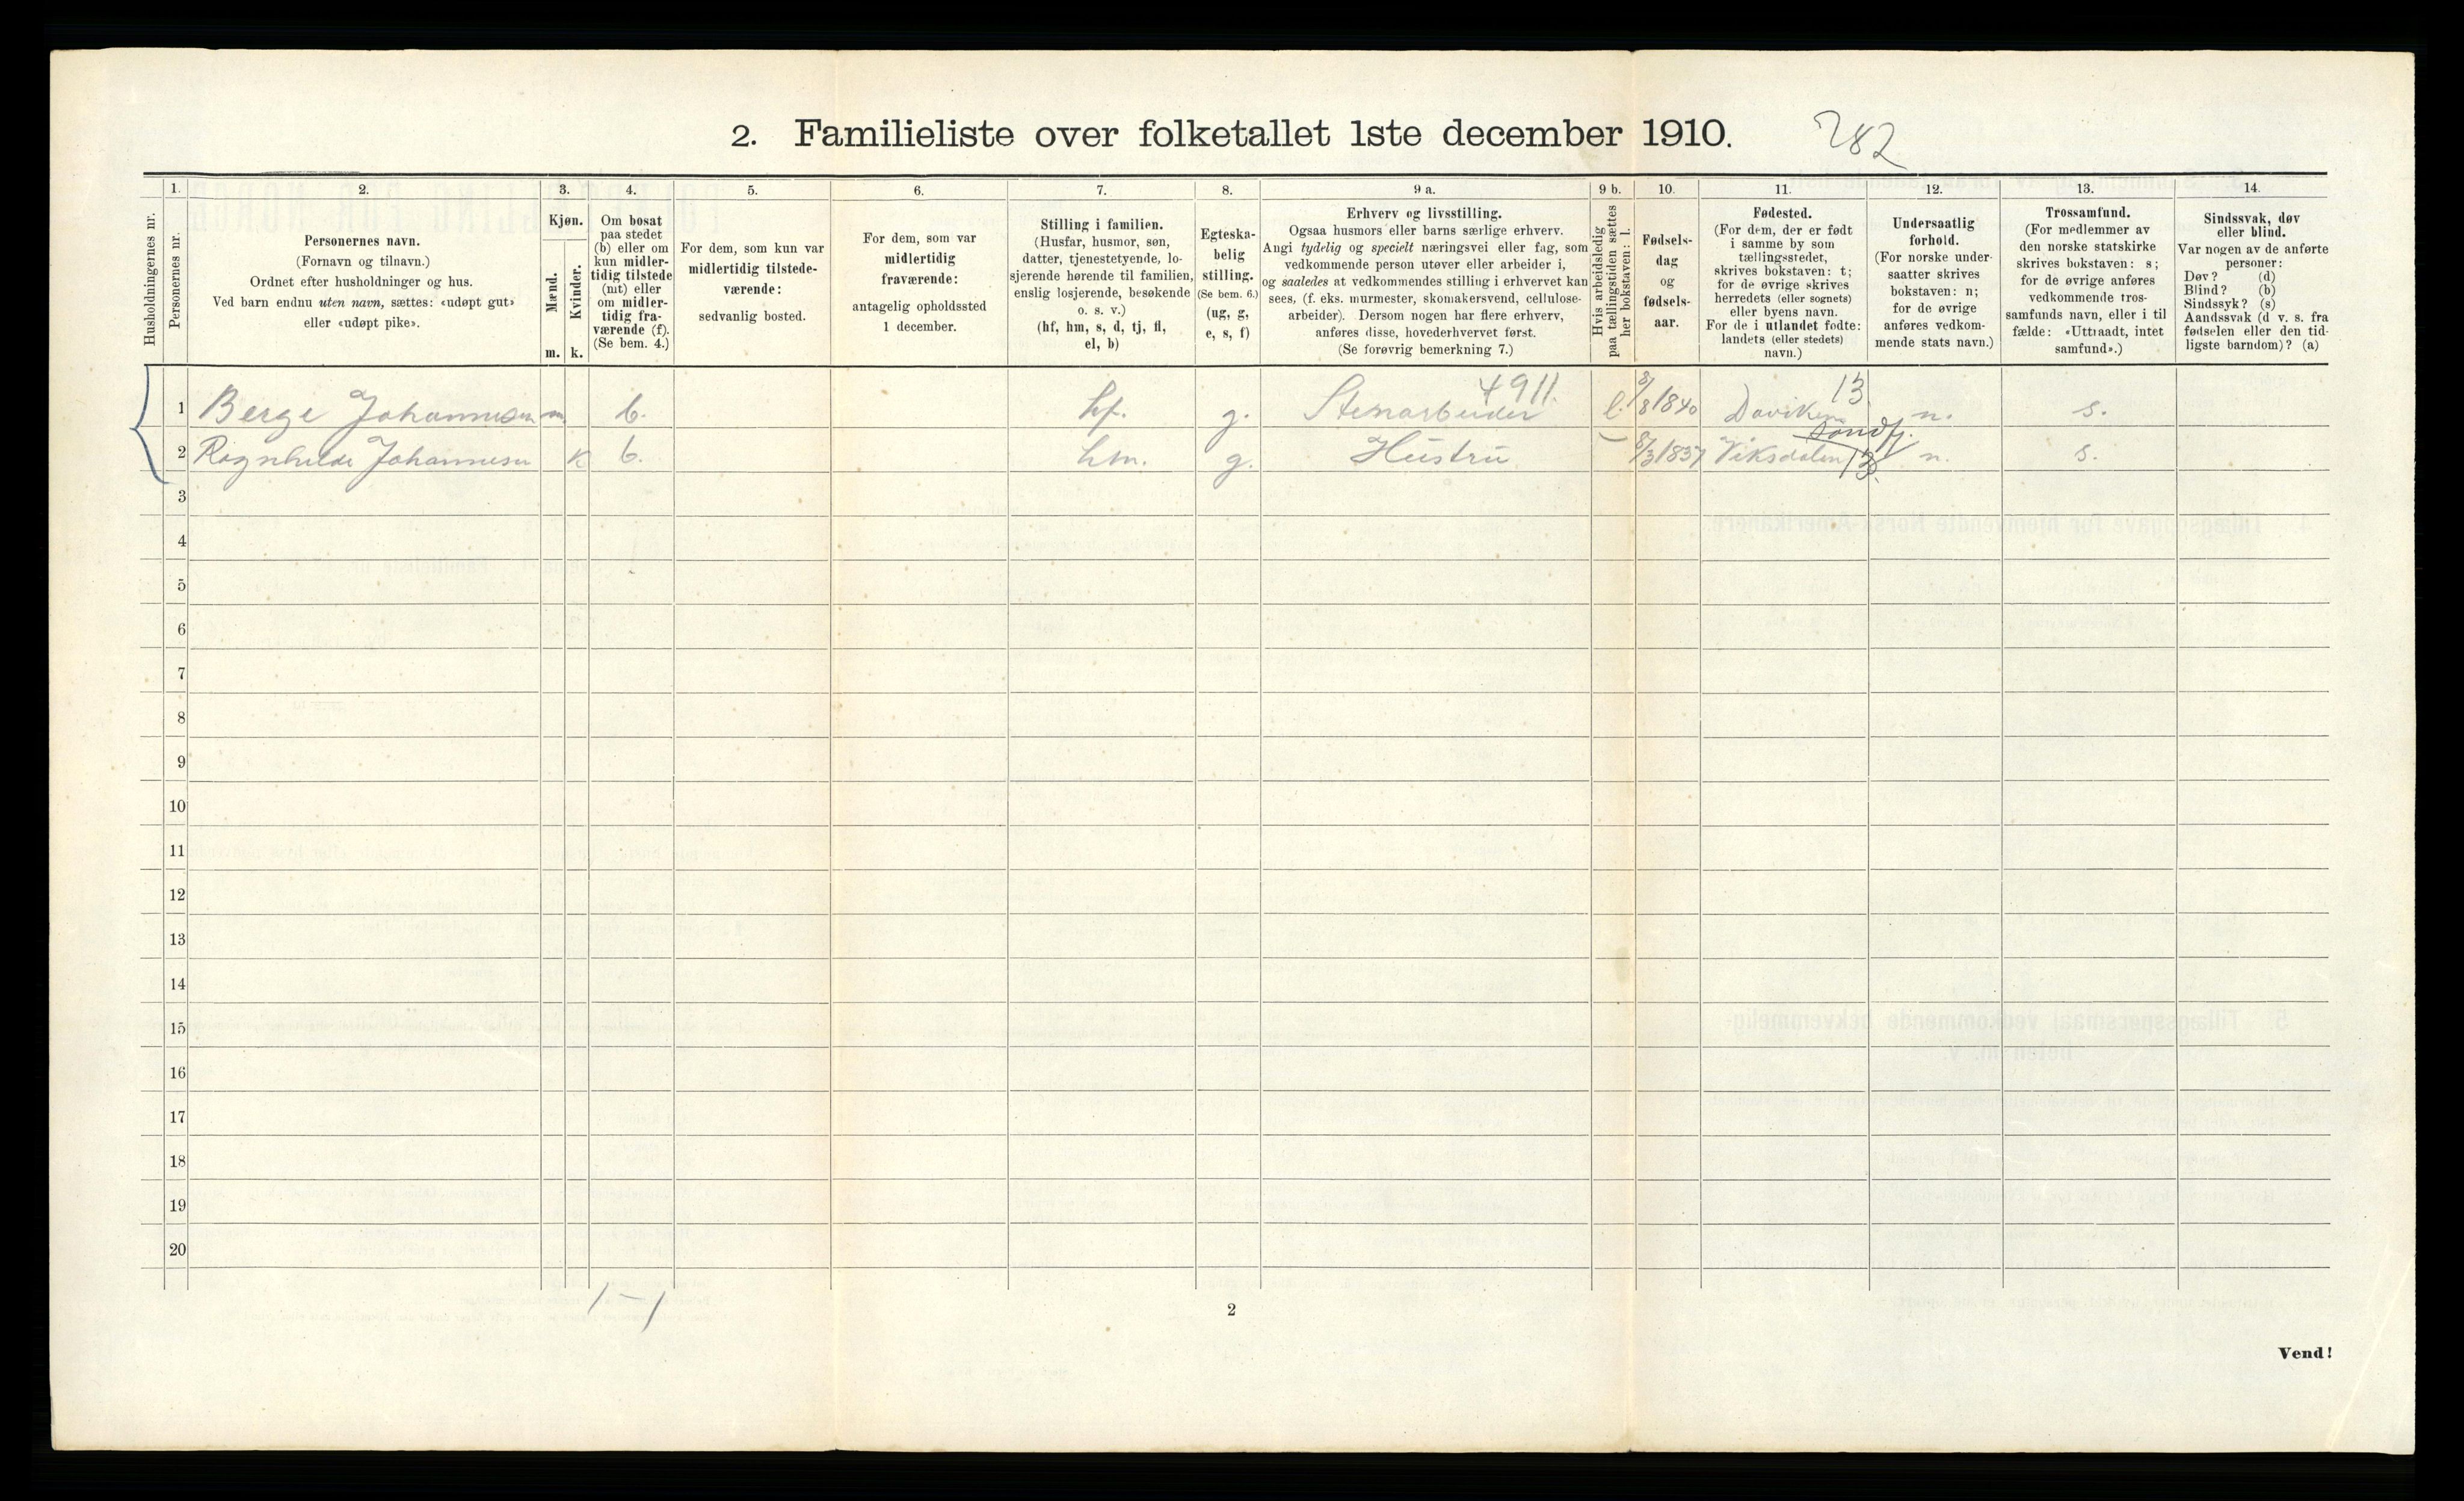 2. Familieliste over folketallet 1ste december 1910. 282
1. 2. 3. 4. 5. 6. 7. 8. 9 a. 9 b. 10. 11. 12. 13. 14.
Husholdningernes nr.
Personernes nr.
Personernes navn.
(Fornavn og tilnavn.)
Ordnet efter husholdninger og hus.
Ved barn endnu uten navn, sættes: «udøpt gut»
eller «udøpt pike».
Kjøn.
Mænd.
m.
Kvinder.
k.
Om bosat
paa stedet
(b) eller om
kun midler-
tidig tilstede
(mt) eller
om midler-
tidig fra-
værende (f).
(Se bem. 4.)
For dem, som kun var
midlertidig tilstede-
værende:
sedvanlig bosted.
For dem, som var
midlertidig
fraværende:
antagelig opholdssted
1 december.
Stilling i familien.
(Husfar, husmor, søn,
datter, tjenestetyende, lo-
sjerende hørende til familien,
enslig losjerende, besøkende
o. s. v.)
(hf, hm, s, d, tj, fl,
el, b)
Egteska-
belig
stilling.
(Se bem. 6.)
(ug, g,
e, s, f)
Erhverv og livsstilling.
Ogsaa husmors eller barns særlige erhverv.
Angi tydelig og specielt næringsvei eller fag, som
vedkommende person utøver eller arbeider i,
og saaledes at vedkommendes stilling i erhvervet kan
sees, (f. eks. murmester, skomakersvend, cellulose-
arbeider). Dersom nogen har flere erhverv,
anføres disse, hovederhvervet først.
(Se forøvrig bemerkning 7.)
Hvis arbeidsledig
paa tællingstiden sættes
her bokstaven: l.
Fødsels-
dag
og
fødsels-
aar.
Fødested.
(For dem, der er født
i samme by som
tællingsstedet,
skrives bokstaven: t;
for de øvrige skrives
herredets (eller sognets)
eller byens navn.
For de i utlandet fødte:
landets (eller stedets)
navn.)
Undersaatlig
forhold.
(For norske under-
saatter skrives
bokstaven: n;
for de øvrige
anføres vedkom-
mende stats navn.)
Trossamfund.
(For medlemmer av
den norske statskirke
skrives bokstaven: s;
for de øvrige anføres
vedkommende tros-
samfunds navn, eller i til-
fælde: «Uttraadt, intet
samfund».)
Sindssvak, døv
eller blind.
Var nogen av de anførte
personer:
Døv? (d)
Blind? (b)
Sindssyk? (s)
Aandssvak (d v. s. fra
fødselen eller den tid-
ligste barndom)? (a)
4911. 13
1 Berge Johannesen m b. hf. g. Stenarbeider l. 8/8 1840 Daviken n. s.
Søndfj.
2 Ragnhilde Johannesen k b. hm. g. Hustru 8/3 1837 Viksdalen 13. n. s.
3
4
5
6
7
8
9
10
11
12
13
14
15
16
17
18
19
20
1 – 1
2
Vend!